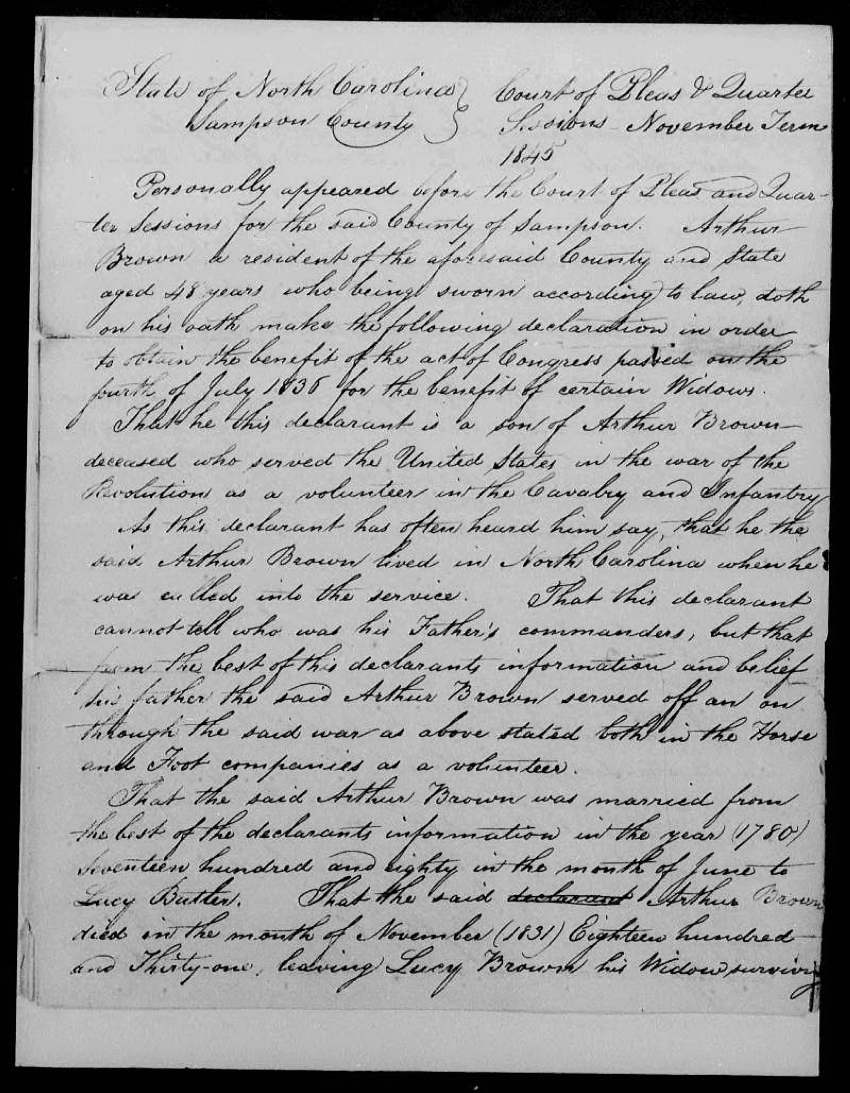 State of North Carolina } Court of Pleas & Quarter
Sampson County } Sessions - November Term
1845
Personally appeared before the Court of Pleas and Quar-
ter Sessions for the said County of Sampson. Arthur
Brown a resident of the aforesaid County and State
aged 48 years who being sworn according to law, doth
on his oath make the following declaration in order
to obtain the benefit of the act of Congress passed on the
fourth of July 1836 for the benefit of certain Widows.
That he this declarant is a son of Arthur Brown
deceased who served the United States in the war of the
Revolution as a volunteer in the Cavalry and Infantry
As this declarant has often heard him say, that he the
said Arthur Brown lived in North Carolina when he
was called into the service. That this declarant
cannot tell who was his Father's commanders, but that
from the best of this declarants information and belief
his father the said Arthur Brown served off an on
through the said war as above stated both in the Horse
and Foot companies as a volunteer.
That the said Arthur Brown was married from
the best of the declarants information in the year (1780)
Seventeen hundred and eighty in the month of June to
Lucy Butler. That the said declarant Arthur Brown
died in the month of November (1831) Eighteen hundred
and Thirty-one, leaving Lucy Brown his Widow surviving